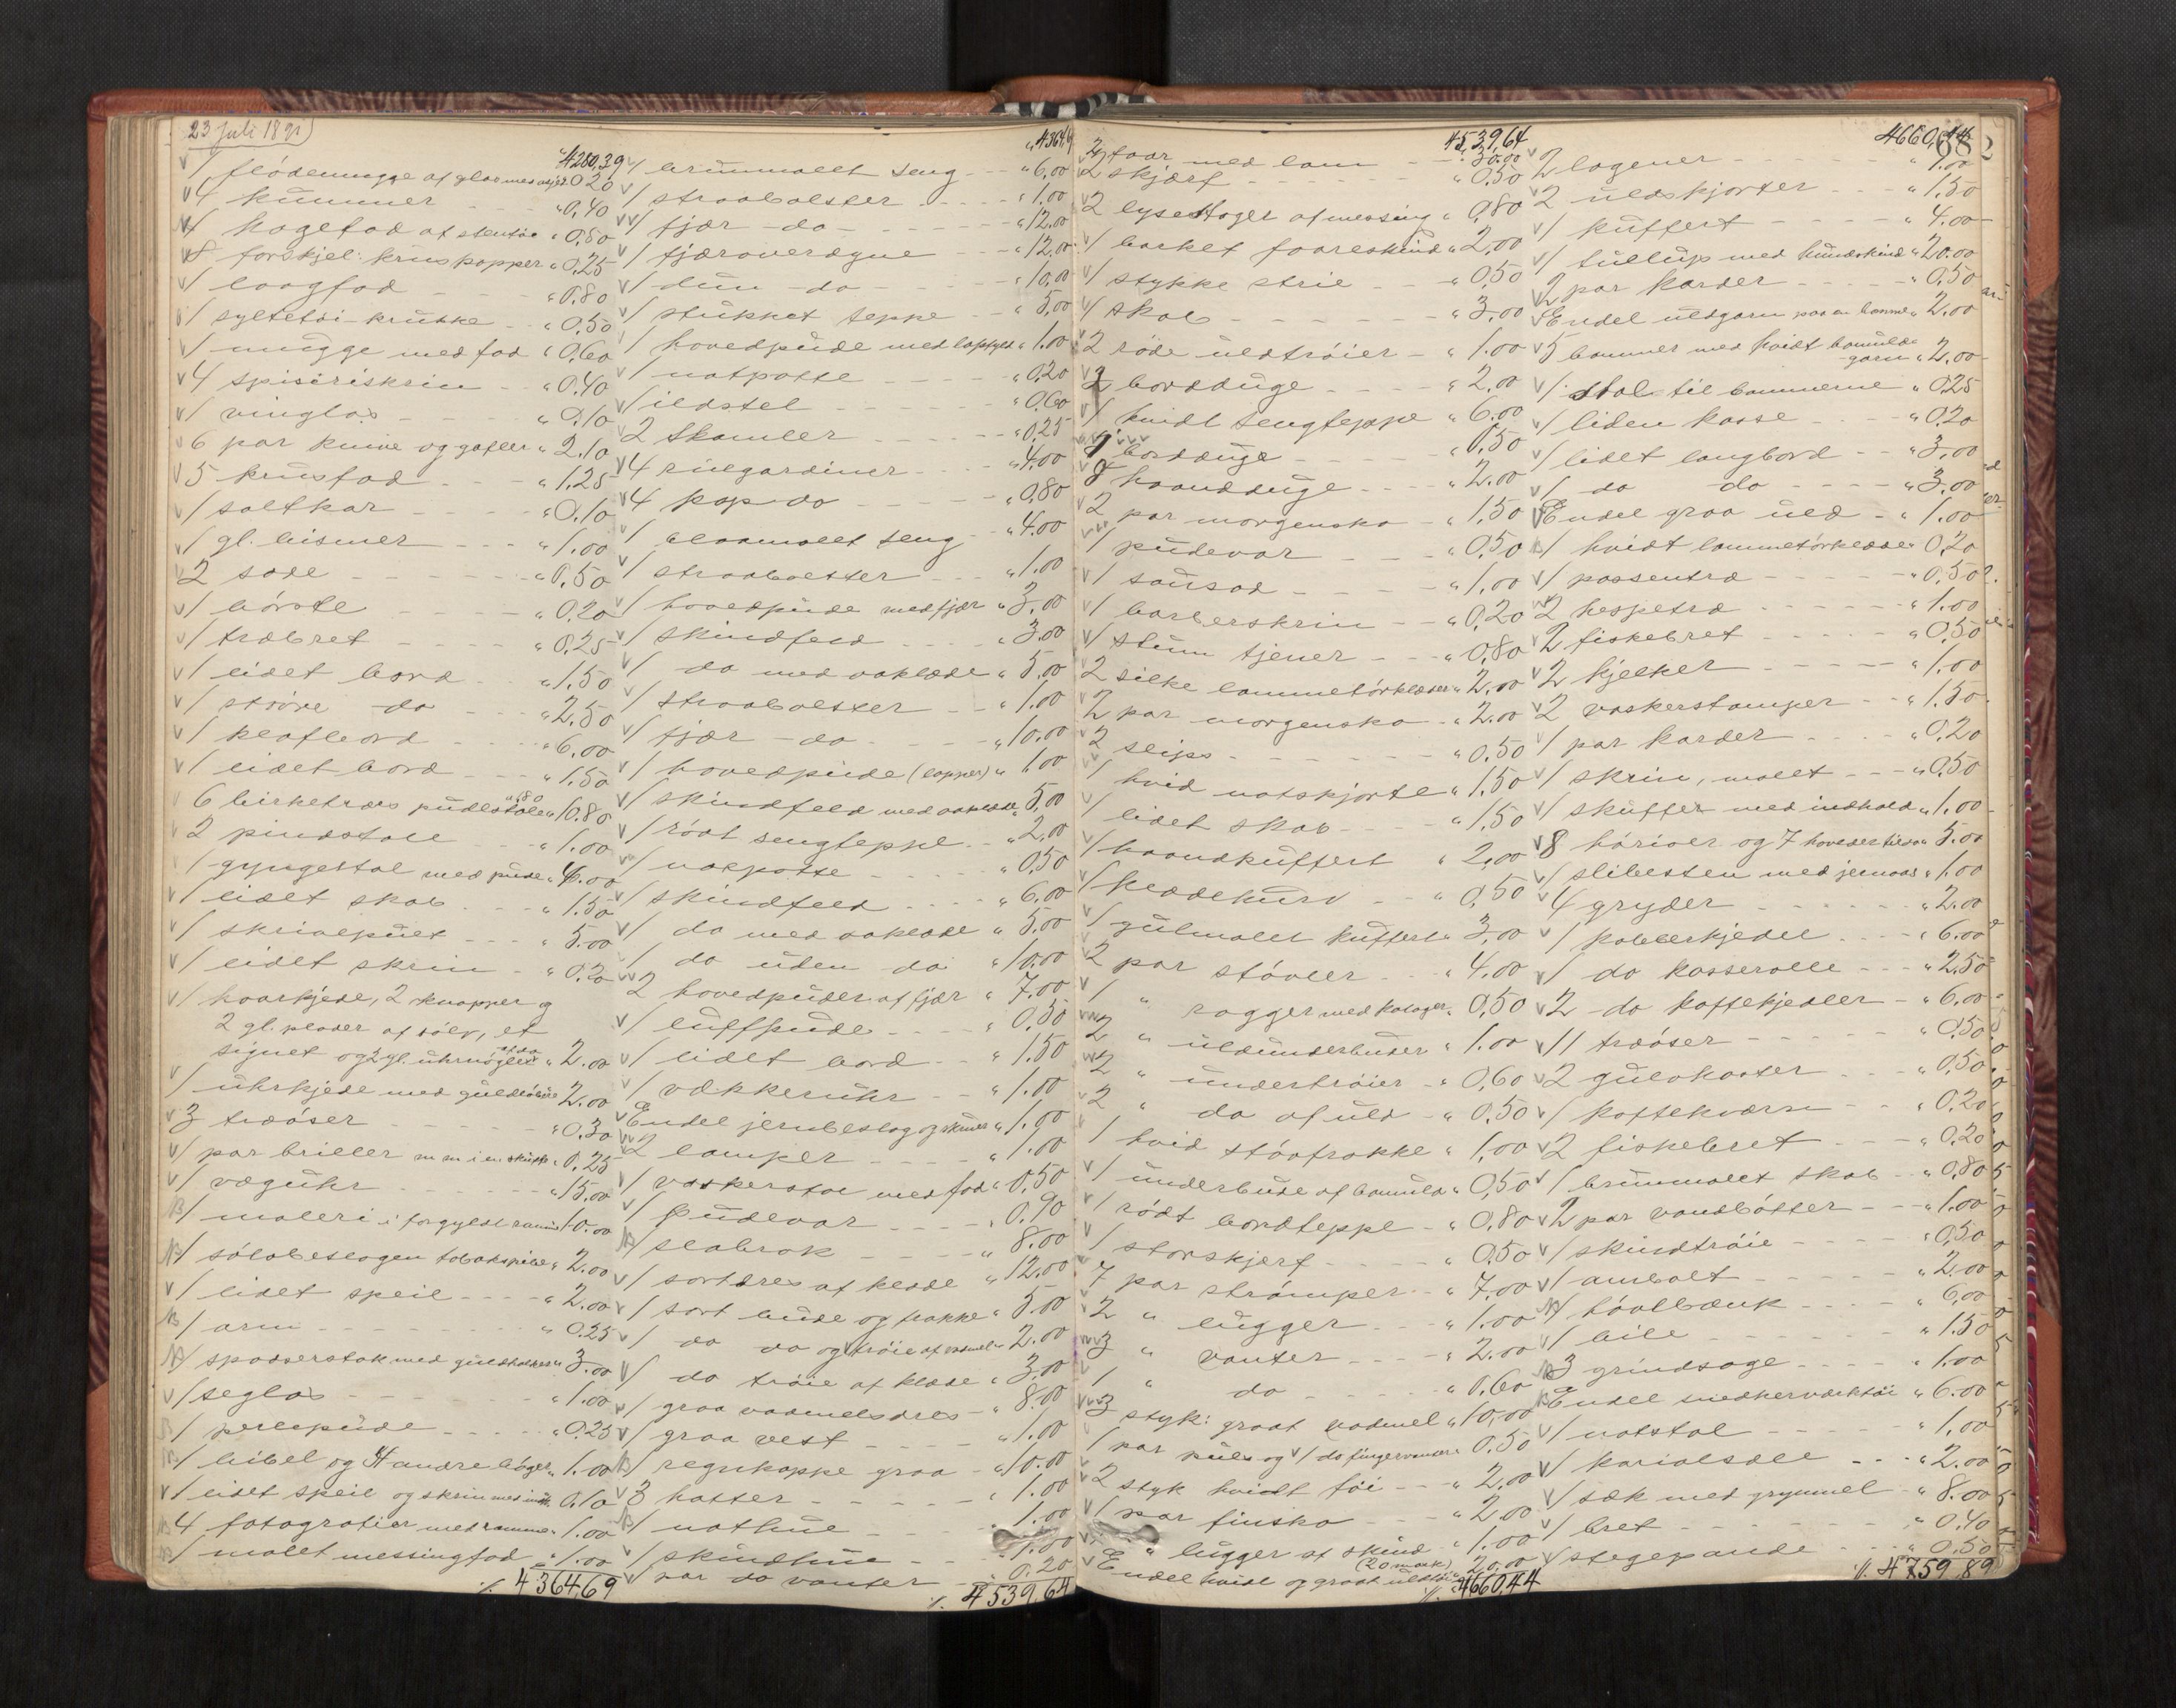 23 juli 1891
4280,39
1 flödemugge af glas med asjet 0,20
4 kummer " 0,40
1 kagefad af stentøi " 0,80
8 forskjel: kruskopper " 0,25
1 laagfad " 0,80
1 syltetøi-krukke " 0,50
1 mugge med fad " 0,60
4 spiseriskrin " 0,40
1 vinglas " 0,10
6 par knive og gafler " 2,10
5 krusfad " 1,25
1 saltkar " 0,10
1 gl. bismer " 1.00
2 sode " 0,50
1 børste " 0,20
1 træbret " 0,25
1 lidet bord " 1,50
1 større do " 2,50
1 klafbord " 6,00
1 lidet bord " 1,50
6 birketræs pudestole " 10,80
2 pindstole " 1.00
1 gyngestol med pude " 4.00
1 lidet skab " 1.50
1 skrivepult " 5.00
1 lidet skrin " 0,20
1 haarkjede, 2 knapper og
2 gl. plader af sölv, et
signet og 2 gl. uhrnøgler af do " 2.00
1 uhrkjede med guldlöbere 2.00
3 træøser " 0,30
1 par briller m m i en skuffe " 0,25
1 væguhr " 15.00
1 maleri i forgyldt ramme 10.00
1 sølvbeslagen tobakspibe " 2.00
1 lidet speil " 2.00
1 arm " 0,25
1 spadserstok med guldholker " 3.00
1 seglas " 1.00
1 perlepude " 0,25
1 bibel og 4 andre bøger " 1.00
1 lidet speil og skrin med indh. 0,10
4 fotografier med ramme " 1.00
1 malet messingfad " 1.00
·/. 4364,69
4364,69
1 brunmalt seng " 6,00
1 straabolster " 1,00
1 fjær -do- " 12,00
1 fjæroverdyne " 12,00
1 dun -do- " 10,00
1 stukket teppe " 5,00
1 hovedpude med lapfyld " 1.00
1 natpotte " 0,20
1 ildstel " 0,60
2 skamler " 0,25
4 rulgardiner " 4,00
4 kap-do " 0,80
1 blaamalt seng " 4,00
1 straabolster " 1.00
1 hovedpude med fjær " 3,00
1 skindfeld " 3,00
1 do med aaklæde " 5,00
1 straabolster " 1.00
1 fjær -do " 10,00
1 hovedpude (lapper) " 1,00
1 skindfeld med aaklæde " 5,00
1 rødt sengteppe " 2,00
1 natpotte " 0,50
1 skindfeld " 6,00
1 do med aaklæde " 5,00
1 do uden do " 10,00
2 hovedpuder af fjær " 7,00
1 luftpude " 0,50
1 lidet bord " 1,50
1 vækkeruhr " 1.00
Endel jernbeslag og skruer " 1,00
2 lamper " 1.00
1 vaskerstol med fad " 0,50
1 pudevar " 0,90
1 slabrok " 8.00
1 sort dres af klæde " 12,00
1 sort buxe og frakke " 5.00
1 do do og trøie af vadmel " 2.00
1 do trøie af klæde " 3,00
1 graa vadmelsdres " 8.00
1 graa vest " 1.00
1 regnkappe graa " 10.00
3 hatter " 1.00
1 nathue 1.00
1 skindhue 1.00
1 par do vanter 0.20
·/. 4539,64
4539,64
4 faar med lam " 30.00
2 skjærf " 0,50
2 lysestager af messing " 0,80
1 barket faareskind " 2,00
1 stykke strie " 0,50
1 skab " 3,00
2 røde uldtrøier " 1.00
2 bordduge " 2,00
1 hvidt sengteppe " 6.00
1 borddug " 0,50
8 haandduge " 2.00
2 par morgensko " 1,50
1 pudevar " 0,50
1 sausad " 1,00
1 barberskrin " 0,20
1 stum tjener " 0,80
2 silke lommetørklæder " 2,00
2 par morgensko " 2.00
2 slips " 0,50
1 hvid natskjorte " 1,50
1 lidet skab " 1,50
1 haandkuffert " 2,00
1 klædekurv " 0,50
1 gulmalt kuffert " 3,00
2 par støvler " 4,00
1 " ragger med kalosjer " 0,50
2 " uldunderbuxer " 1.00
2 " undertrøier " 0,60
2 " do af uld " 0,50
1 hvid støvfrakke " 1,00
1 underbuxe af bomuld " 0,50
1 rødt bordteppe " 0,80
1 storskjerf " 0,50
7 par strømper " 7,00
2 " lugger " 1.00
3 " vanter " 2.00
1 " do " 0,60
3 styk: graat vadmel " 10,00
1 par puls og 1 do fingervanter " 0,50
2 styk hvidt tøi " 2,00
1 par finsko " 2.00
1 " lugger af skind " 1.00
Endel hvidt og graat uldtøi (20 mark) 20,00
·/. 4660,44
4660,44
682
2 lagener " 1.00
2 uldskjorter " 1,50
1 kuffert " 4.00
1 tullup med hundskind " 20.00
2 par karder " 0,50
Endel uldgarn paa en bomme " 2,00
5 bommer med hvidt bomulds
garn " 2,00
1 stol til bommerne " 0,25
1 liden kasse " 0,20
1 lidet langbord " 3,00
1 do do " 3,00
Endel graa uld " 1.00
1 hvidt lommetørklæde " 0,20
1 passentræ " 0,50
2 hespetræ " 1.00
2 fiskebret " 0,50
2 kjelker " 1.00
2 vaskerstamper " 1.50
1 par karder " 0,20
1 skrin, malet " 0,50
1 skuffer med indhold " 1.00
8 høriver og 7 hoveder til do " 5.00
1 slibesten med jernaas " 1.00
4 gryder " 2.00
1 kobberkjedel " 6.00
1 do kasserolle " 2,50
2 do kaffekjedler " 6.00
11 træøser " 0,50
2 gulvkoster " 0,50
1 kaffekværn " 0,20
2 fiskebret " 0,20
1 brunmalt skab " 0,80
2 par vandbøtter " 1.00
1 skindtrøie " 0,50
1 ambolt " 2.00
1 høvlbænk " 6,00
1 bile " 1.50
3 grindsage " 1.00
Endel snedkerværktøi " 6.00
1 natstol " 1,00
1 karioldæle " 2.00
1 sæk med grymmel " 8.00
1 bret " 0,40
1 stegepande " 0,50
·/. 4759,89